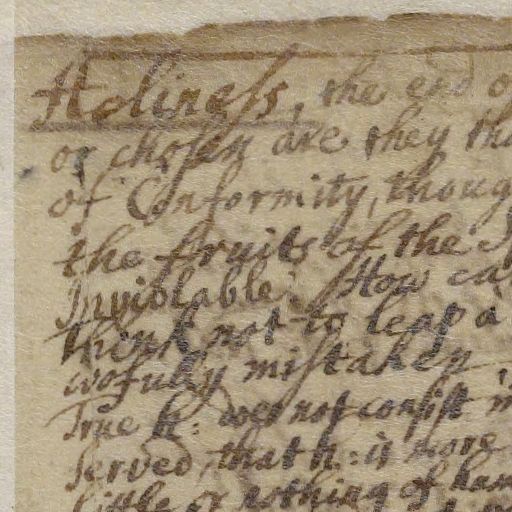 Holiness, the end o
or chosen are they tha
of Conformity, thoug
the fruits of the S
Inviolable. How ca
think not to leap a
wofully mistaken
True h: does not consist in
served, that h: is more
little or nothing of han